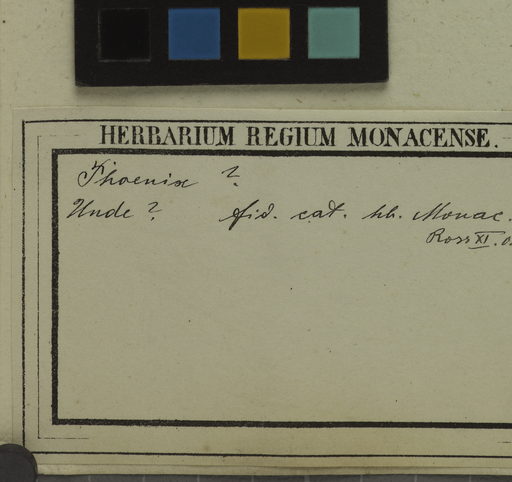 HERBARIUM REGIUM MONACENSE.
Phoenix ?
Unde ? fid. cat. hb. Monac.
Ross XI. 0